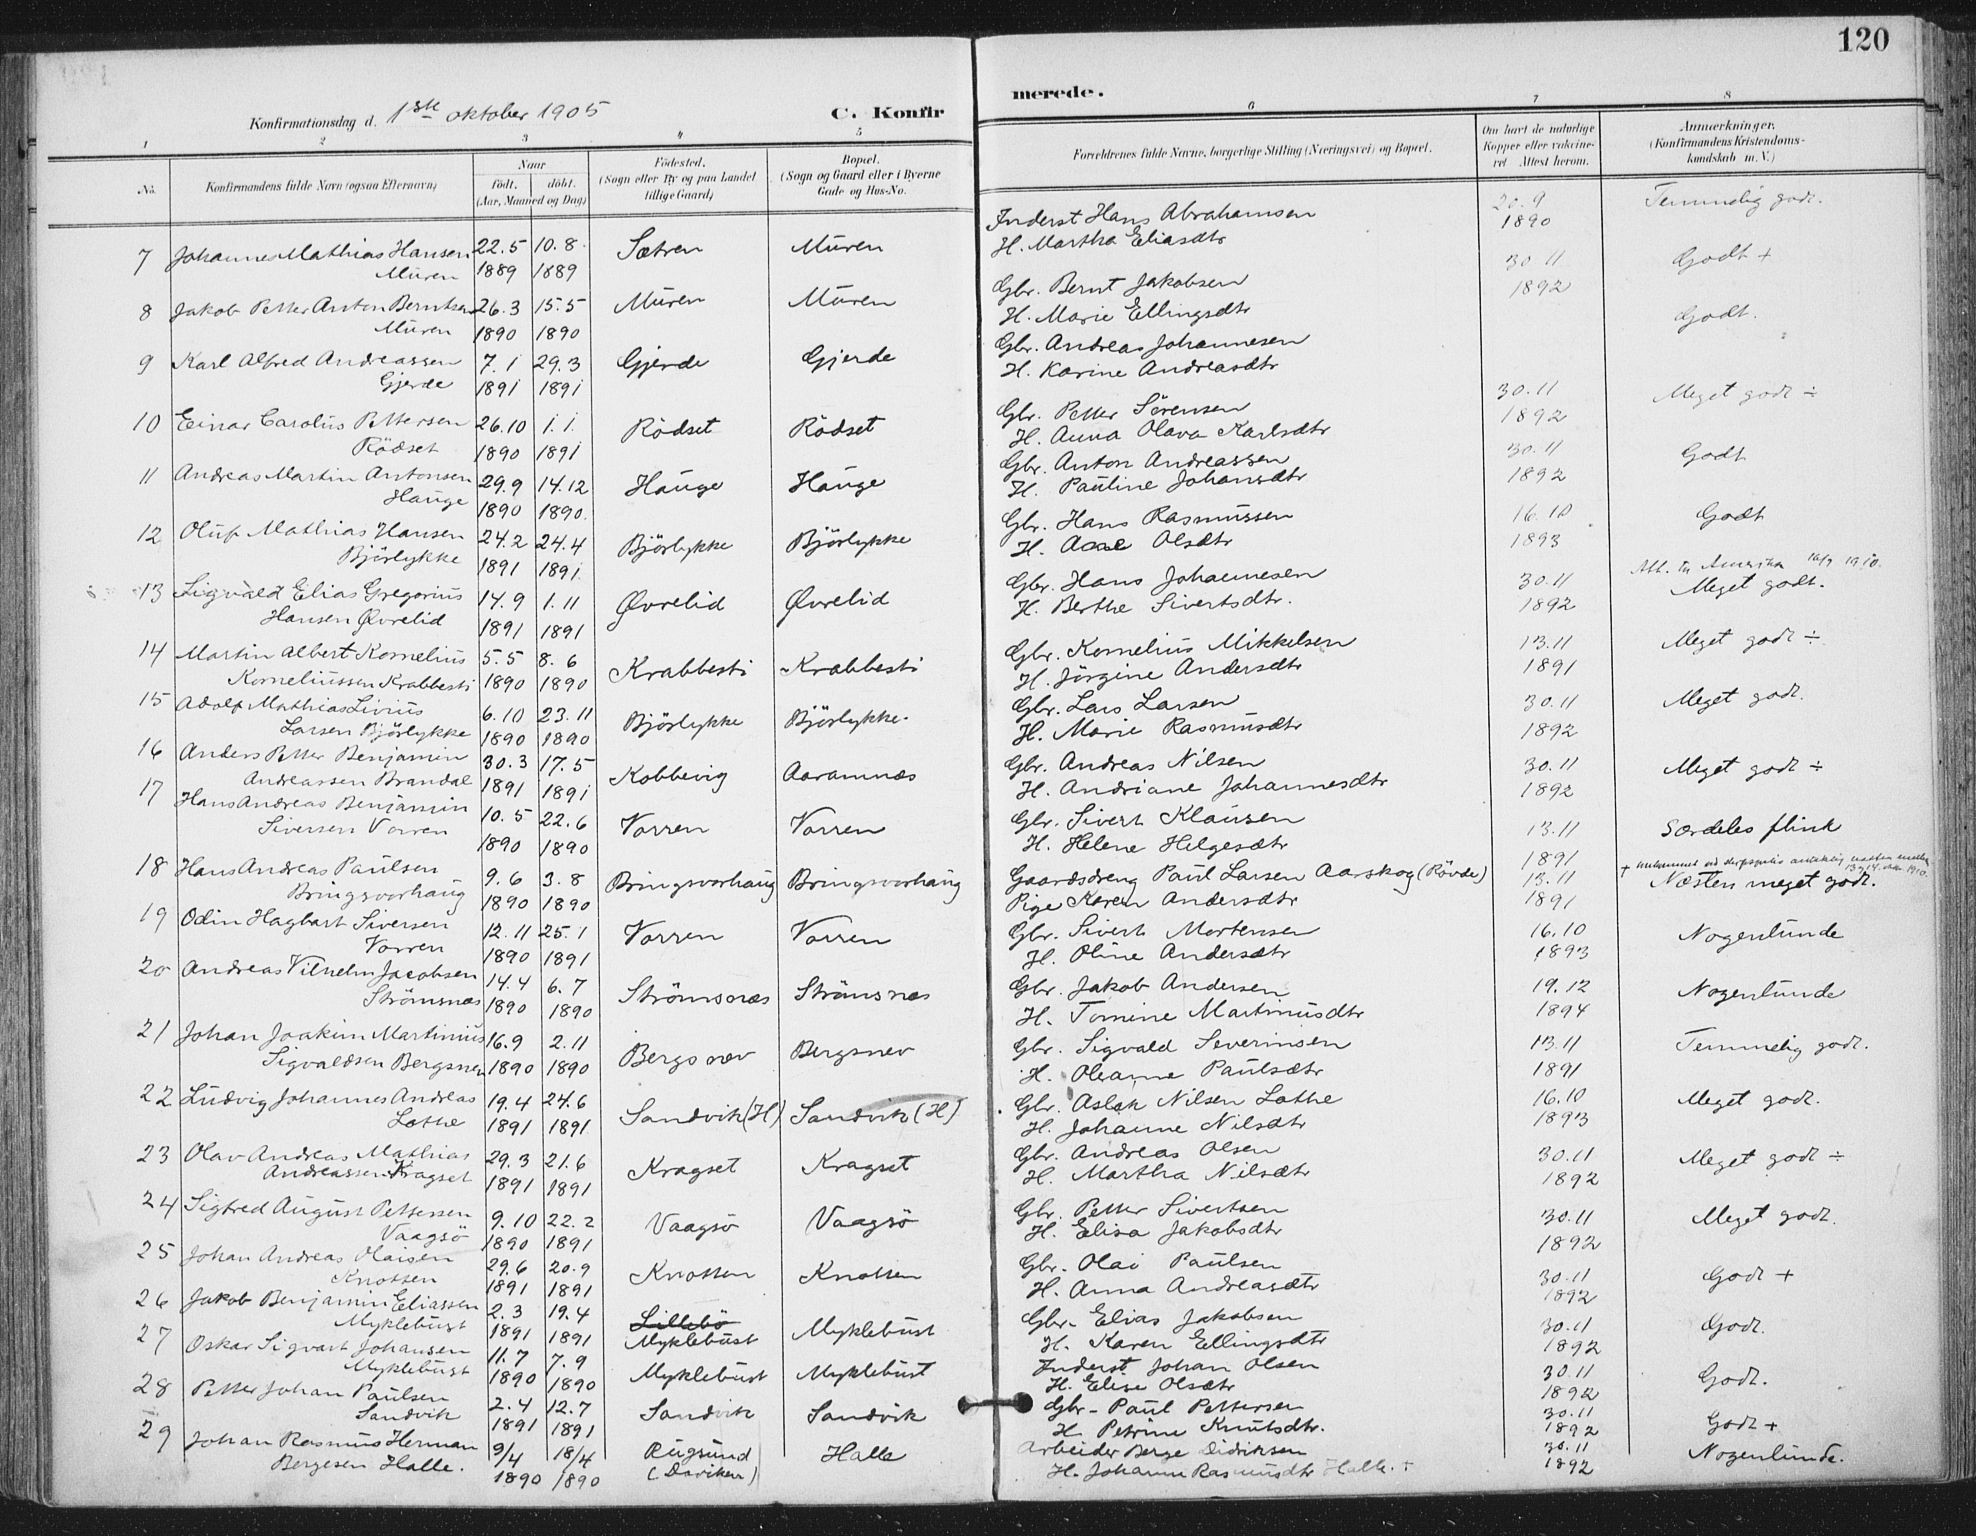 120
Konfirmationsdag d. 1ste oktober 1905
C. Konfirmerede.
1 2 3 4 5 6 7 8
No.
Konfirmandens fulde Navn (ogsaa Efternavn)
Naar
født. døbt.
(Aar, Maaned og Dag)
Fødested.
(Sogn eller By og paa Landet
tillige Gaard)
Bopæl.
(Sogn og Gaard eller i Byerne
Gade og Hus-No.
Forældrenes fulde Navne, borgerlige Stilling (Næringsvei) og Bopæl.
Om havt de naturlige
Kopper eller vaccineret. Attest herom.
Anmærkninger.
(Konfirmandens Kristendoms-
kundskab m. V.)
7 Johannes Mathias Hansen 22.5 10.8 Sætren Muren Inderst Hans Abrahamsen 20.9 Temmelig godt.
Muren 1889 1889 H. Martha Eliasdtr 1890
8 Jakob Petter Anton Berntsen 26.3 15.5 Muren Muren Gbr. Bernt Jakobsen 30.11 Godt +
Muren 1890 1890 H. Marie Ellingsdtr 1892
9 Karl Alfred Andreassen 7.1 29.3 Gjerde Gjerde Gbr. Andreas Johannesen Godt.
Gjerde 1891 1891 H. Karine Andreasdtr
10 Einar Carolus Pettersen 26.10 1.1. Rödset Rödset Gbr. Petter Sörensen 30.11 Meget godt ÷
Rödset 1890 1891 H. Anna Olava Karlsdtr 1892
11 Andreas Martin Antonsen 29.9 14.12 Hauge Hauge Gbr. Anton Andreassen 30.11 Godt
Hauge 1890 1890. H. Pauline Johansdtr 1892
12 Oluf Mathias Hansen 24.2 24.4 Björlykke Björlykke Gbr. Hans Rasmussen 16.10 Godt
Björlykke 1891 1891 H. Aase Olsdtr 1893
13 Sigvald Elias Gregorius 14.9 1.11 Øvrelid Øvrelid Gbr. Hans Johannesen 30.11 Att. til Amerika 1910.
Hansen Øvrelid 1891 1891 H. Berthe Sivertsdtr. 1892 Meget godt.
14 Martin Albert Kornelius 5.5 8.6 Krabbesti Krabbesti Gbr. Kornelius Mikkelsen 13.11 Meget godt ÷
Korneliussen Krabbesti 1890 1890 H. Jörgine Andersdtr 1891
15 Adolf Mathias Livius 6.10 23.11 Björlykke Björlykke. Gbr. Lars Larsen 30.11 Meget godt.
Larsen Björlykke 1890 1890 H. Marie Rasmusdtr 1892
16 Anders Petter Benjamin 30.3 17.5 Kobbevig Aaramnæs Gbr. Andreas Nilsen 30.11 Meget godt ÷
Andreassen Brandal 1891 1891 H. Andriane Johannesdtr 1892
17 Hans Andreas Benjamin 10.5 22.6 Vorren Vorren Gbr. Sivert Klausen 13.11 Særdeles flink
Siversen Vorren 1890 1890 H. Helene Helgesdtr 1891
18 Hans Andreas Paulsen 9.6 3.8 Bringsvorhaug Bringsvorhaug Gaardsdreng Paul Larsen Aarskog (Rövde) 13.11 + omkommet ved natten mellem 13 og 14 1910.
Bringsvorhaug 1890 1890 Pige Karen Andersdtr 1891 Næsten meget godt.
19 Odin Hagbart Siversen 12.11 25.1 Vorren Vorren Gbr. Sivert Mortensen 16.10 Nogenlunde
Vorren 1890 1891 H. Oline Andersdtr 1893
20 Andreas Vilhelm Jacobsen 14.4 6.7 Strömsnæs Strömsnæs Gbr. Jakob Andersen 19.12 Nogenlunde
Strömsnæs 1890 1890 H. Tomine Martinusdtr 1894
21 Johan Joakim Martinius 16.9 2.11 Bergsnev Bergsnev Gbr. Sigvald Severinsen 13.11 Temmelig godt.
Sigvaldsen Bergsnev 1890 1890 H. Oleanne Paulsdtr 1891
22 Ludvig Johannes Andreas 19.4 24.6 Sandvik (H) Sandvik (H) Gbr. Aslak Nilsen Lothe 16.10 Meget godt.
Lothe 1891 1891 H. Johanne Nilsdtr 1893
23 Olav Andreas Mathias 29.3 21.6 Kragset Kragset Gbr. Andreas Olsen 30.11 Meget godt ÷
Andreassen Kragset 1891 1891 H. Martha Nilsdtr 1892
24 Sigfred August Pettersen 9.10 22.2 Vaagsö Vaagsö Gbr. Petter Sivertsen 30.11 Meget godt.
Vaagsö 1890 1891 H. Elisa Jakobsdtr 1892
25 Johan Andreas Olaisen 29.6 20.9 Knotten Knotten Gbr. Olai Paulsen 30.11 Godt +
Knotten 1891 1891 H. Anna Andreasdtr 1892
26 Jakob Benjamin Eliassen 2.3 19.4 Lillebö Myklebust Gbr. Elias Jakobsen 30.11 Godt.
Myklebust 1891 1891 Myklebust H. Karen Ellingsdtr 1892
27 Oskar Sigvart Johansen 11.7 7.9 Myklebust Myklebust Inderst Johan Olsen 30.11 Godt.
Myklebust 1890 1890 H. Elise Olsdtr 1892
28 Petter Johan Paulsen 2.4 12.7 Sandvik Sandvik Gbr. Paul Pettersen 30.11 Godt +
Sandvik 1891 1891 H. Petrine Knutsdtr. 1892
29 Johan Rasmus Herman 9/4 18/4 Rugsund Halle Arbeider Berge Didriksen 30.11 Nogenlunde.
Bergesen Halle. 1890 1890 (Daviken) H. Johanne Rasmusdtr Halle. + 1892